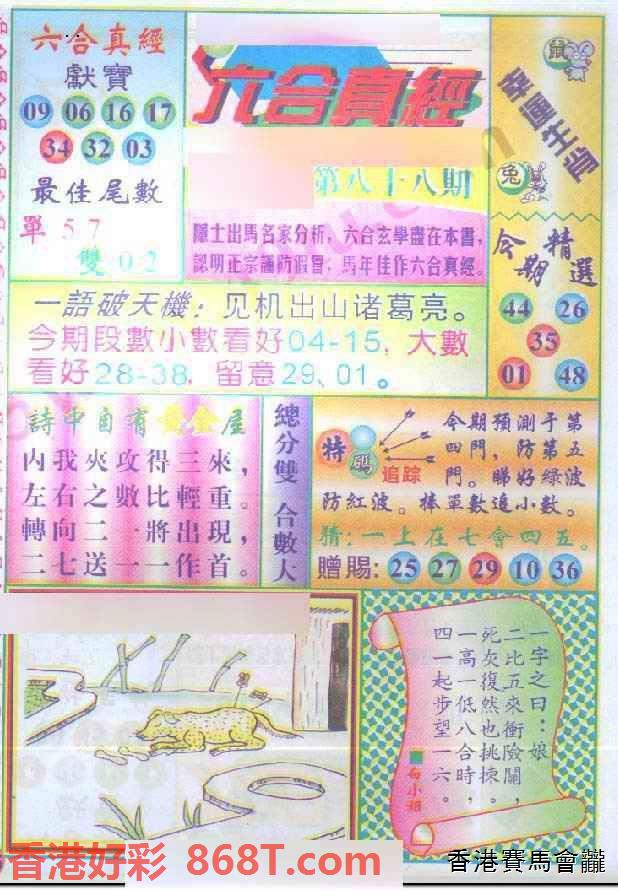 六合真經
獻寶
09 06 16 17
34 32 03
最佳尾數
單 5 7
雙 0 2
六合真經
第八十八期
隱士出馬名家分析，六合玄學盡在本書，
認明正宗謹防假冒，馬年佳作六合真經。
鼠
幸運生肖
兔
今期精選
44 26
35
01 48
一語破天機：见机出山诸葛亮。
今期段數小數看好04-15，大數
看好28-38，留意29、01。
詩中自有黃金屋
內我夾攻得三來，
左右之數比輕重。
轉向二一將出現，
二七送一一作首。
總分雙 合數大
特碼
追踪
今期預測于第
四門，防第五
門。睇好綠波
防紅波。捧單數追小數。
猜：一上在七會四五。
贈賜：25 27 29 10 36
一字之曰：娘
二比五來衝險關，
死灰復然也挑揀。
一高一低八合時，
四一起步望一六。
香港好彩 868T.com
香港賽馬會